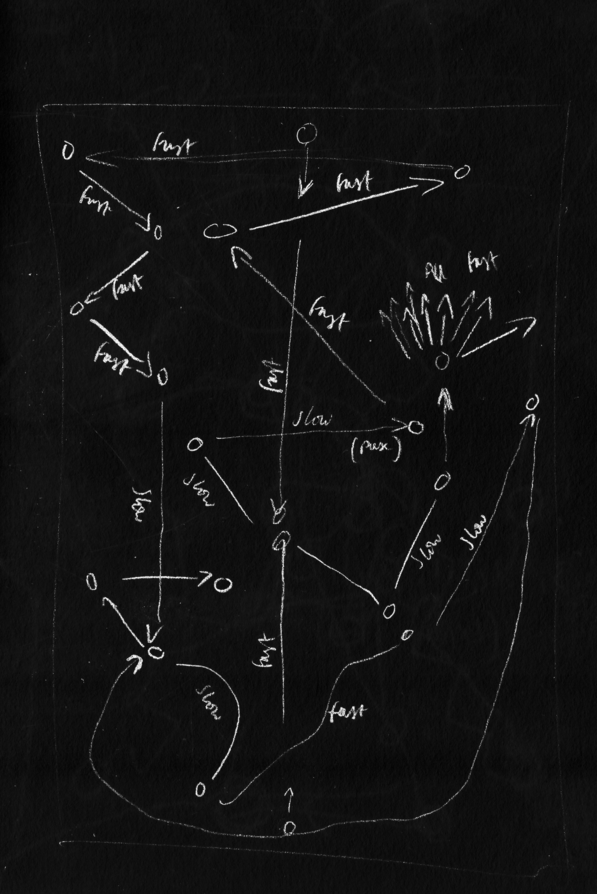 Fast
Fast
Fast
All Fast
Fast
Fast
Fast
Fast
Slow
(pause)
Slow
Slow
Slow
Slow
Fast
Slow
fast